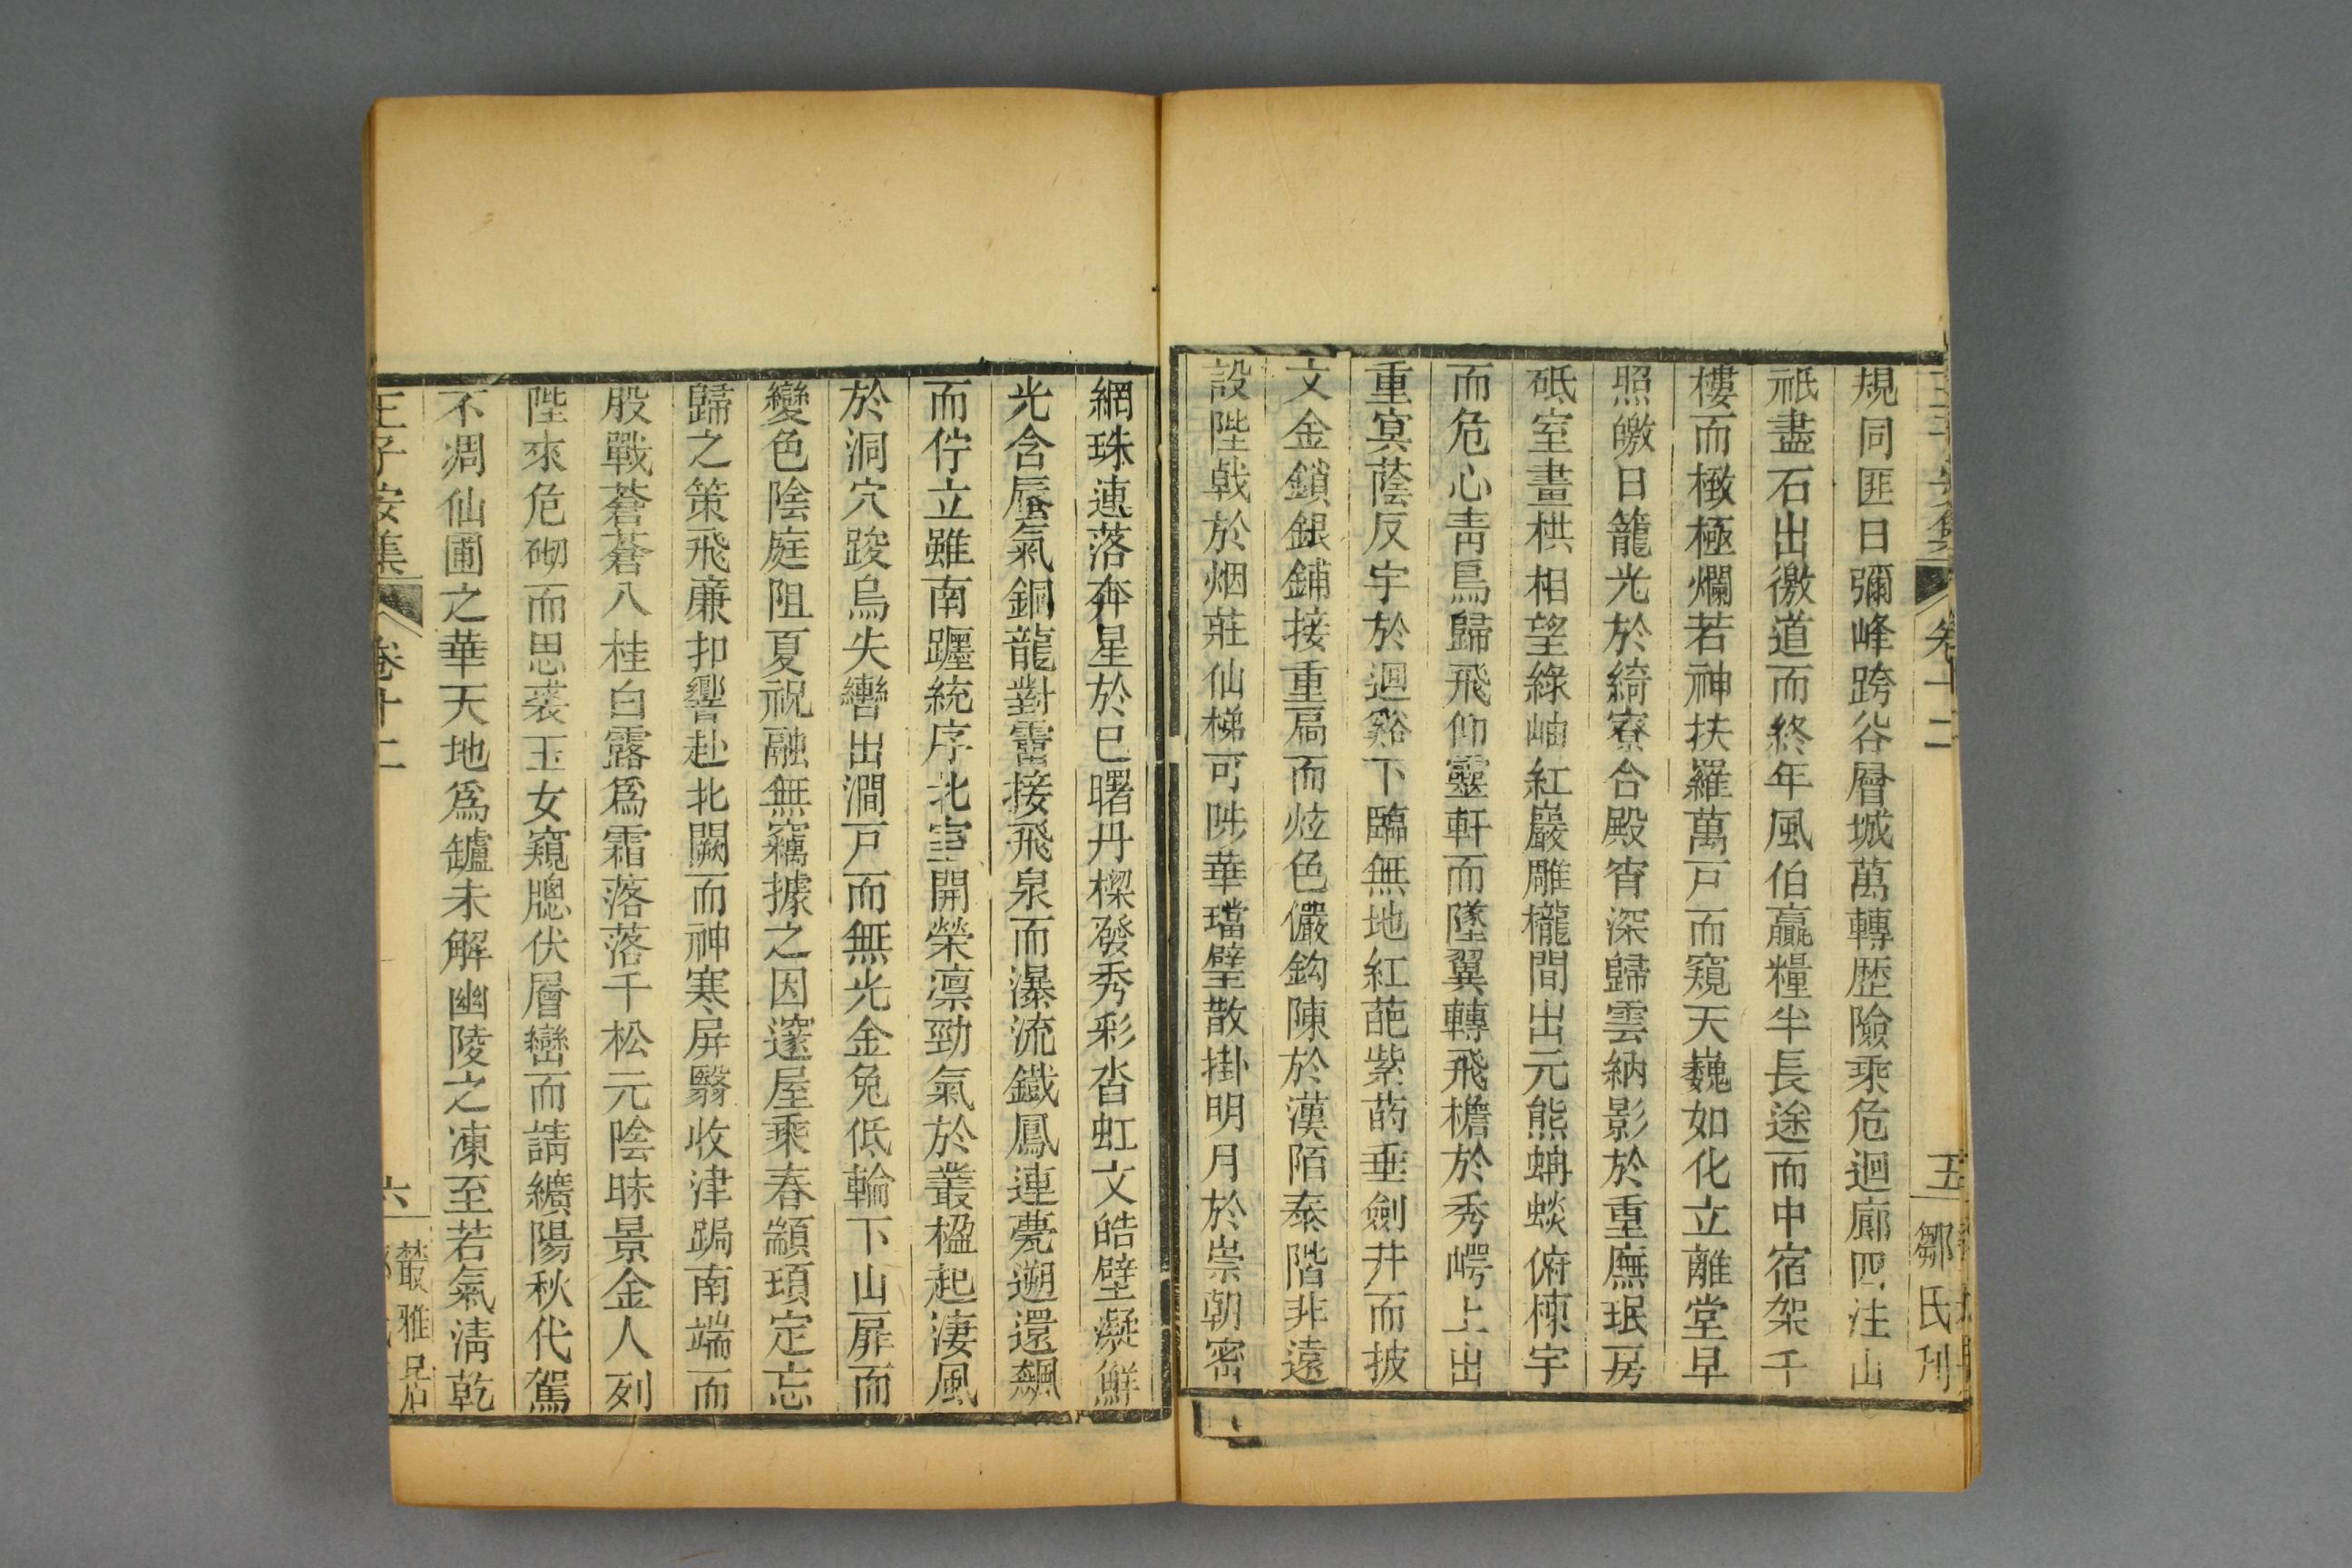 王子安集 卷十二 五 鄒氏刊
規同匪日彌峰跨谷層城萬轉歷險乘危迴廊四注山
祇盡石出徼道而終年風伯贏糧半長途而中宿架千
樓而檄極爛若神扶羅萬戸而窺天巍如化立離堂早
照皦日籠光於綺寮合殿宵深歸雲納影於重廡珉房
砥室畫栱相望綠岫紅巖雕櫳間出元熊蚺蜦俯棟宇
而危心青鳥歸飛仰靈軒而墜翼轉飛檐於秀崿上出
重冥蔭反宇於迴谿下臨無地紅葩紫菂垂劍井而披
文金鎖銀鋪接重扃而炫色儼鈎陳於漢陌泰階非遠
設陛戟於烟莊仙梯可陟華璫璧散掛明月於崇朝密
網珠連落奔星於巳曙丹楹發秀彩沓虹文皓壁凝鮮
光含蜃氣銅龍對霤接飛泉而瀑流鐵鳳連甍遡還飆
而佇立雖南躔統序北室開榮凛勁氣於叢楹起淒風
於洞穴踆烏失轡出澗戸而無光金兔低輪下山扉而
變色陰庭阻夏祝融無竊據之因邃屋乘春顓頊定忘
歸之策飛廉扣響赴北闕而神寒屏翳收津跼南端而
股戰蒼蒼八桂白露爲霜落落千松元陰昧景金人列
陛來危砌而思裘玉女窺牕伏層巒而請纊陽秋代駕
不凋仙圃之華天地爲鑪未解幽陵之凍至若氣淸乾
王子安集 卷十二 六 叢雅居